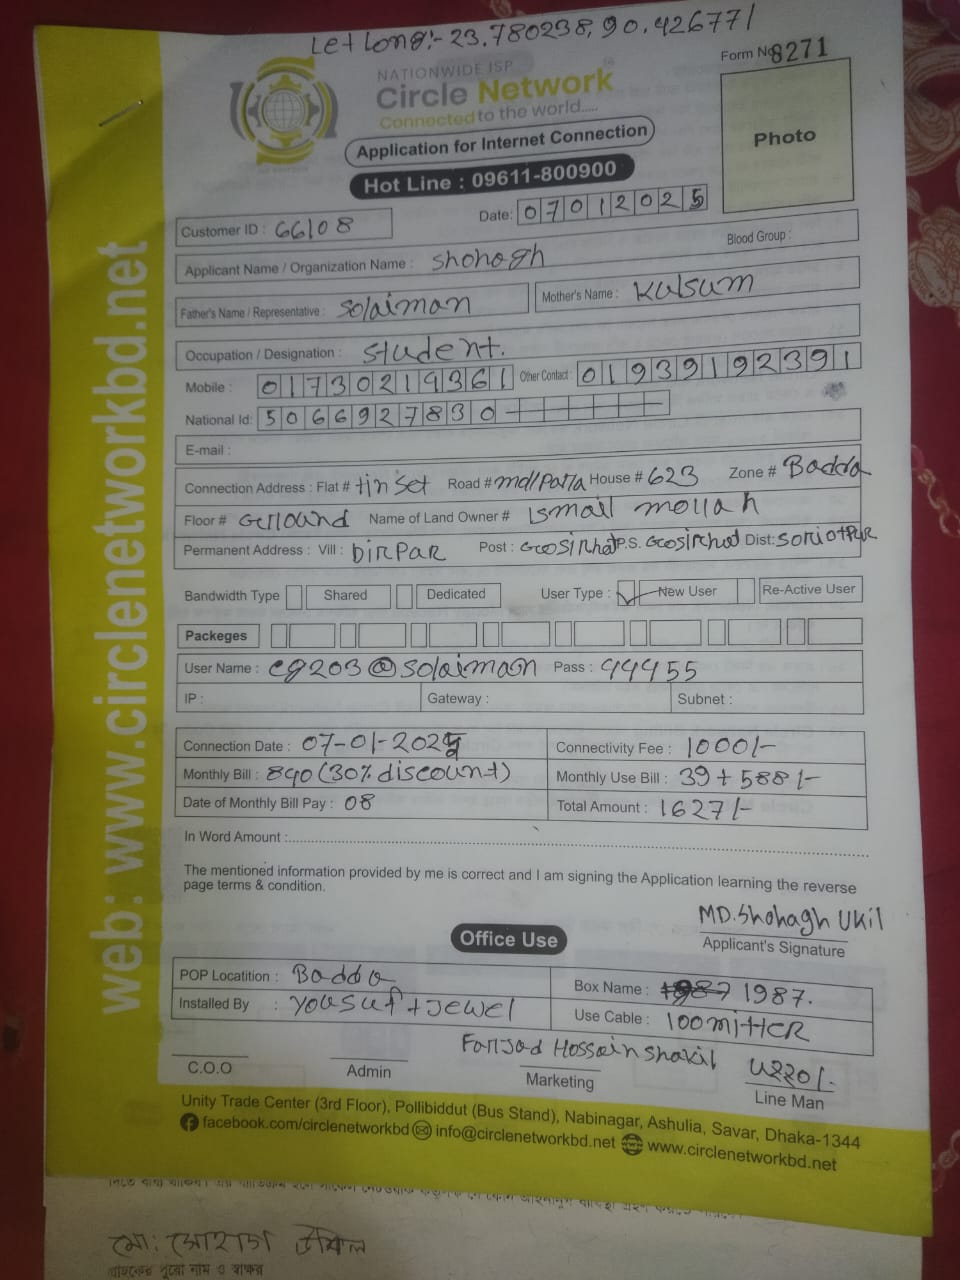 Let Long:- 23.780238, 90.426771
Form No 8271
NATIONWIDE ISP
Circle Network
Connected to the world.....
Photo
Application for Internet Connection
Hot Line : 09611-800900
Customer ID : 66108
Date: 07012025
Blood Group :
Applicant Name / Organization Name : Shohagh
Father's Name / Representative : Solaiman Mother's Name : Kulsum
Occupation / Designation : Student.
Mobile : 01730219361 Other Contact : 01939192391
National Id: 5066927830
E-mail :
Connection Address : Flat # tin Set Road # House # 623 Zone # Badda
Floor # Name of Land Owner # Ismail mollah
Permanent Address : Vill : DirPar Post : P.S. Dist:
Bandwidth Type Shared Dedicated User Type : New User Re-Active User
Packeges
User Name : cg203@solaiman Pass : 44455
IP : Gateway : Subnet :
Connection Date : 07-01-2025 Connectivity Fee : 1000/-
Monthly Bill : 840 (30% discount) Monthly Use Bill : 39+588/-
Date of Monthly Bill Pay : 08 Total Amount : 1627/-
In Word Amount :
The mentioned information provided by me is correct and I am signing the Application learning the reverse
page terms & condition.
MD. Shohagh Ukil
Applicant's Signature
Office Use
POP Locatition : Badda Box Name : 1987.
Installed By : Yousuf + Jewel Use Cable : 100 mitter
Hossain Shakil
C.O.O Admin Marketing Line Man
Unity Trade Center (3rd Floor), Pollibiddut (Bus Stand), Nabinagar, Ashulia, Savar, Dhaka-1344
facebook.com/circlenetworkbd info@circlenetworkbd.net www.circlenetworkbd.net
web: www.circlenetworkbd.net
মো: সোহাগ উকিল
গ্রাহকের পুরো নাম ও স্বাক্ষর